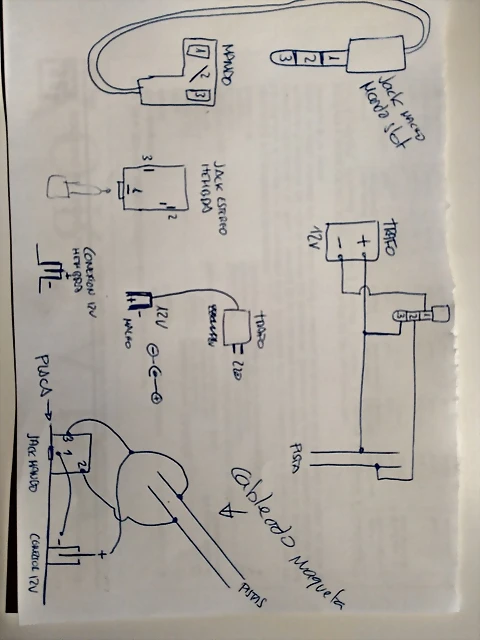 MANDO
1
2
3
3
2
1
Jack MACHO
Mando slot
JACK ESTEREO
HEMBRA
3
1
2
TRAFO
12V
- +
3
2
1
CONEXION 12V
HEMBRA
+
-
12V
MACHO
- +
TRAFO
220
PISTA
Cableado Maqueta
PLACA
3
1
2
JACK MANDO
- +
12V
PISTAS